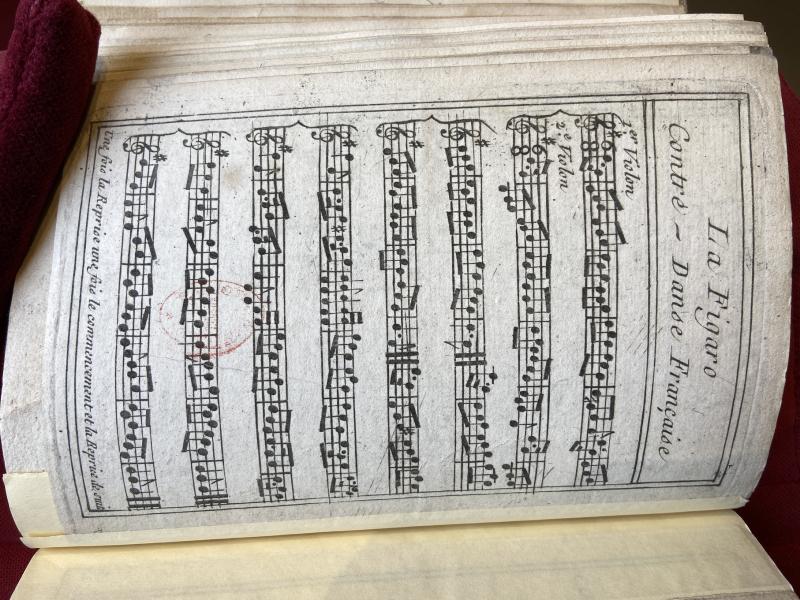 La Figaro
Contre - Danse Française
1er Violon
2e Violon
Une fois la Reprise une fois le commencement et la Reprise de